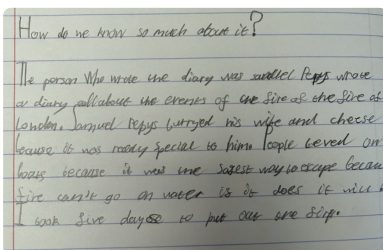 How do we know so much about it?
The person Who wrote the diary was samuel Pepys wrote
a diary all about the events of the fire of the fire of
London. Samuel Pepys burryed his wife and cheese
cause it was really special to him. People leved on
boats because it was the safest way to escape becau
fire can't go on water is it does it will
I took five days to put out the fire.